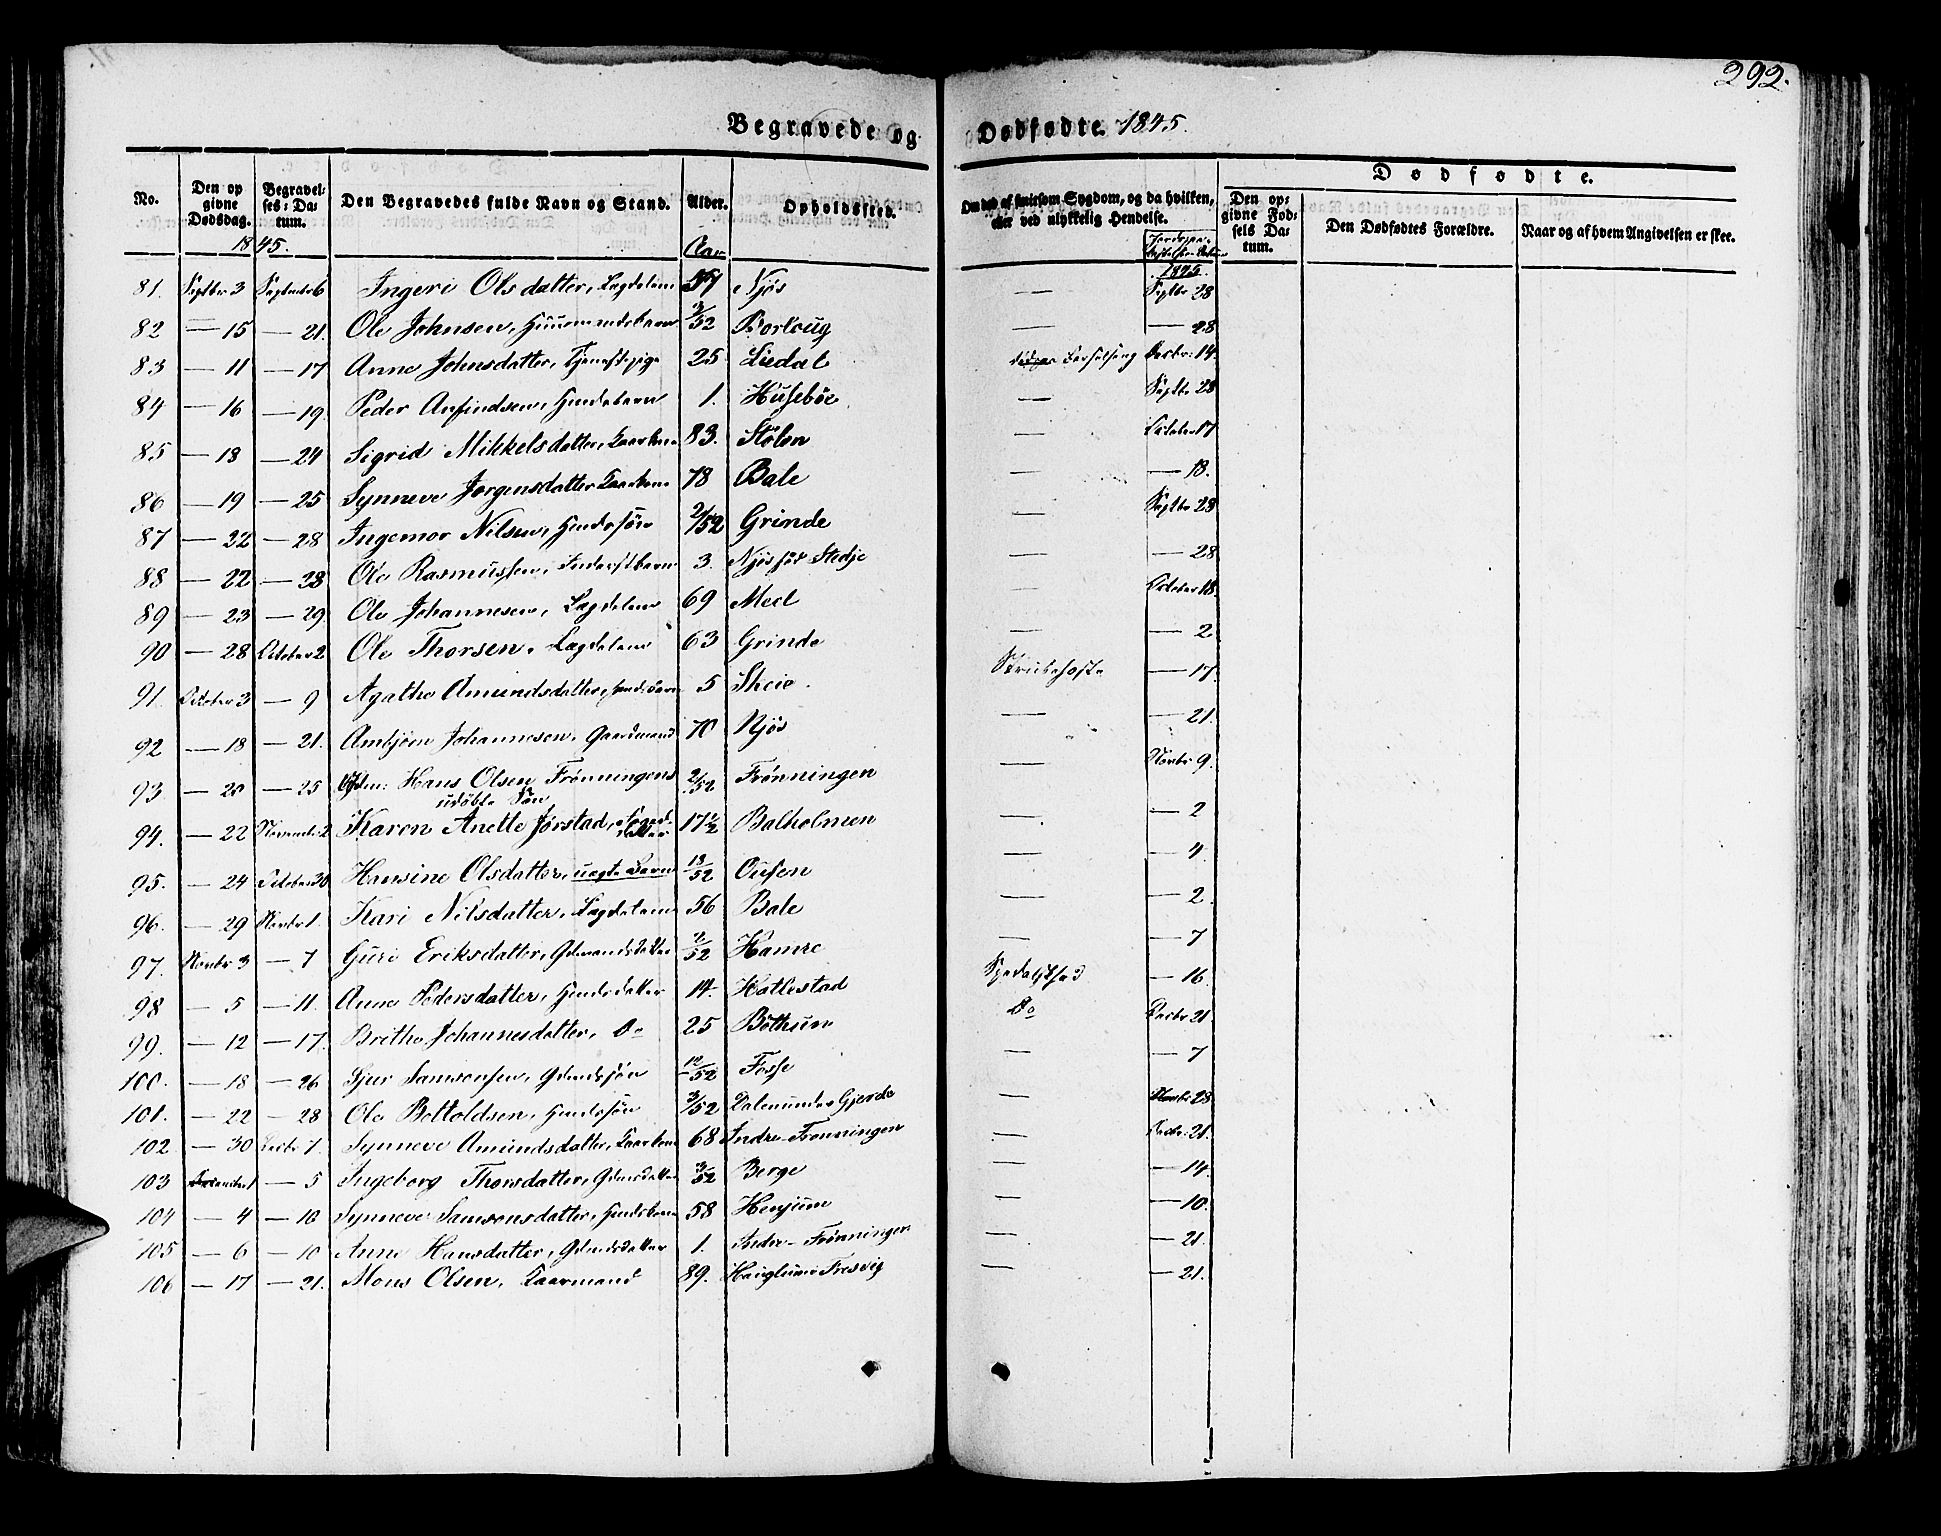 292.
Begravede og Dødfødte. 1845.
No. Den opgivne Dødsdag. Begravelses-Datum. Den Begravedes fulde Navn og Stand. Alder. Opholdssted. Om død af smitsom Sygdom, og da hvilken, eller ved ulykkelig Hendelse. Dødfødte.
Den opgivne Fødsels Datum. Den Dødfødtes Forældre. Naar og af hvem Angivelsen er skee.
1845. Aar 1845.
81. Septbr 3 September 6 Ingeri Olsdatter, Lægdelem Njøs — Septbr 28
82 — 15 — 21. Ole Johnsen, Huusmandsbarn 3/52 Borloug — — 28
83 — 11 — 17 Anne Johnsdatter, Tjenestepige 25 Liedal Decbr: 14.
84 — 16 — 19. Peder Anfindsen, Gmdsbarn 1. Husebøe — Septbr 28
85 — 18 — 24 Sigrid Mikkelsdatter, Kaarkone 83. Stølen — October 17
86 — 19 — 25 Synneve Jørgensdatter Kaarkone 78 Bale — — 18.
87 — 22 — 28 Ingemor Nilsen, Gmdssøn 2/52 Grinde — Septbr 28
88 — 22 — 28 Ole Rasmussen, Inderstbarn 3. Njøs før Stedje — — 28
89 — 23 — 29 Ole Johannesen, Lægdelem 69 Meel — October 18.
90 — 28 October 2 Ole Thorsen, Lægdelem 63 Grinde — — 2
91. October 3 — 9 Agatha Amundsdatter, 5 Skeie. Strubehoste — 17
92 — 18 — 21. Ambjørn Johannesen, Gaardmand 70 Njøs — — 21.
93 — 20 — 25 Hans Olsen Frønningens 2/52 Frønningen — Novbr 9.
udøbte Søn
94. — 22 November 2 Karen Anette Jørstad, 17 1/2 Balholmen — — 2
95. — 24 October 30 Hansine Olsdatter, uægte Barn 13/52 Ousen — — 4.
96. — 29 Novbr 1. Kari Nilsdatter, Lægdelem 56 Bale — — 2.
97. Novbr 3 — 7 Guri Eriksdatter, Gdmandsdatter /52 Hamre — — 7
98 — 5 — 11. Anna Pedersdatter, Hmdsdatter 14. Hatlestad Spedalskhed — 16.
99. — 12 — 17. Britha Johannesdatter, Do 25 Bøthun Do Decbr 21.
100. — 18 — 26 Sjur Samsonsen, Gdmdssøn 12/52 Fosse — — 7
101. — 22 — 28 Ole Bottoldsen, Hmdssøn 3/52 Dalen under Gjerde — Novbr 28.
102 — 30 Decbr 7. Synneve Amundsdatter, Kaarkone 68 Indre-Frønningen — Decbr. 21.
103 December 1 — 5 Ingeborg Thorsdatter, Gdmdsdatter 3/52 Berge — — 14.
104 — 4 — 10 Synneve Samsonsdatter, Hmdskone 58 Henjum — — 10.
105 — 6 — 10 Anna Hansdatter, Gdmdsdatter 1. Indre-Frønningen — — 21.
106 — 17 — 21. Mons Olsen, Kaarmand 89. Hauglum i Fresvig — — 21.